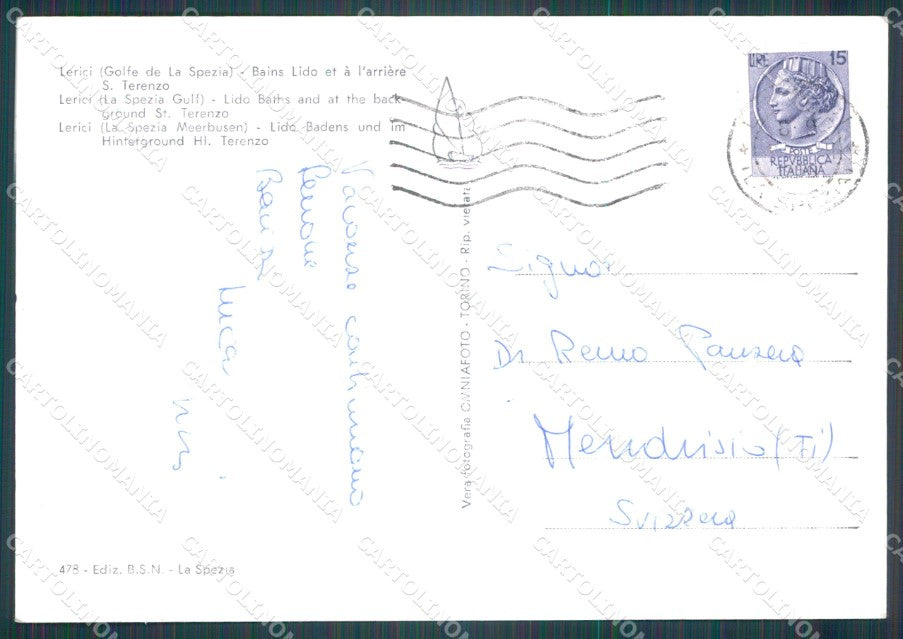 Lerici (Golfe de La Spezia) - Bains Lido et à l'arrière
S. Terenzo
Lerici (La Spezia Gulf) - Lido Baths and at the back-
ground St. Terenzo
Lerici (La Spezia Meerbusen) - Lido Badens und im
Hinterground Hl. Terenzo
LIRE 15
POSTE
REPVBBLICA
ITALIANA
Vera fotografia OMNIAFOTO - TORINO - Rip. vietata
Luca
Signor
Dr Remo Panzera
Mendrisio (Ti)
Svizzera
478 - Ediz. B.S.N. - La Spezia
CARTOLINOMANIA